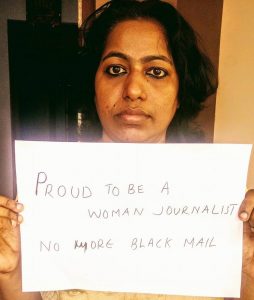 PROUD TO BE A
WOMAN JOURNALIST
NO MORE BLACK MAIL